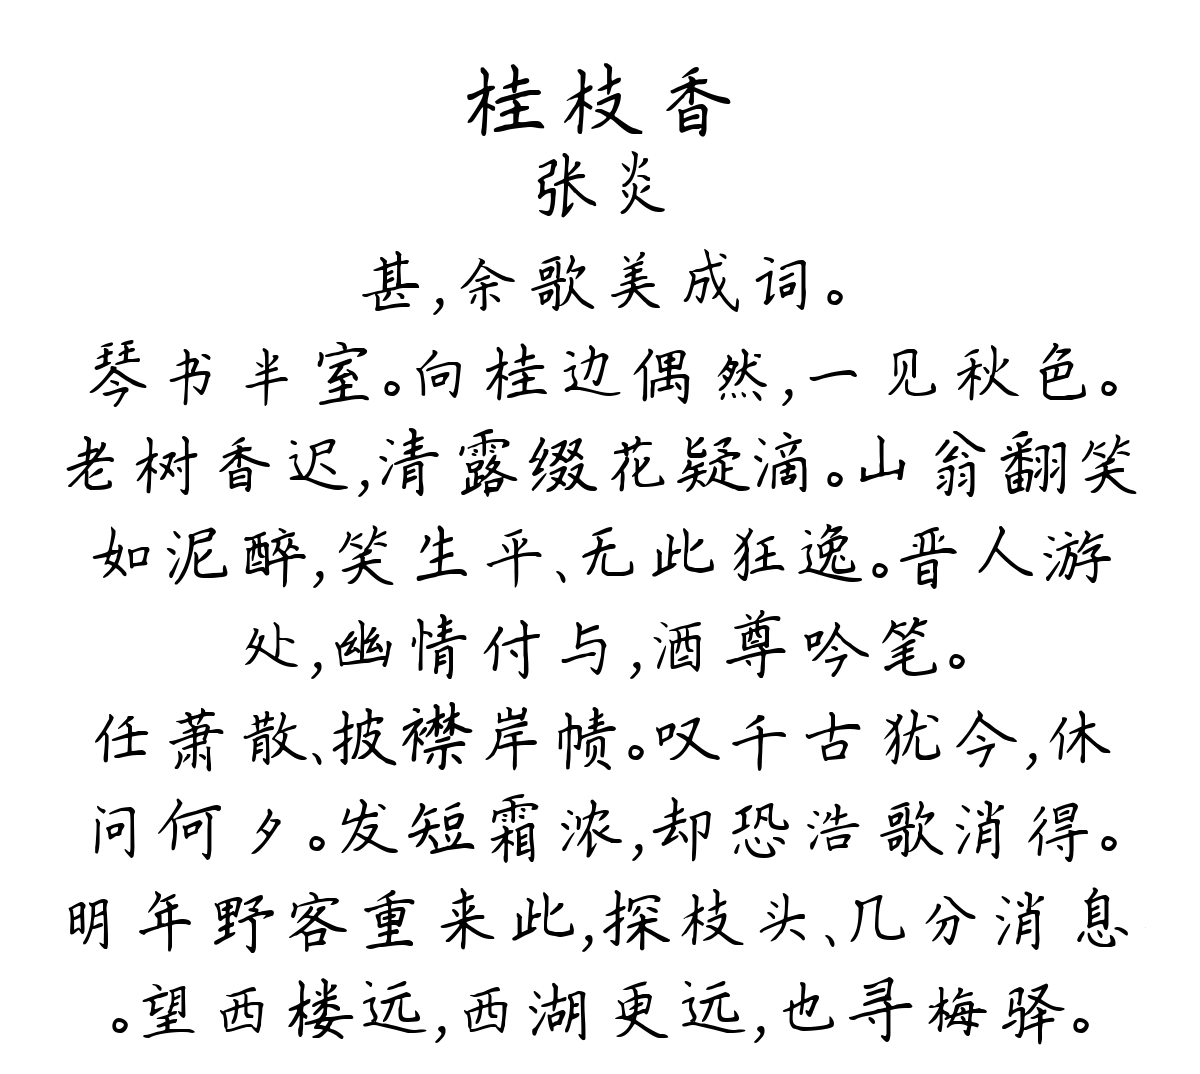 桂枝香
张炎
甚,余歌美成词。
琴书半室。向桂边偶然,一见秋色。
老树香迟,清露缀花疑滴。山翁翻笑
如泥醉,笑生平、无此狂逸。晋人游
处,幽情付与,酒尊吟笔。
任萧散、披襟岸帻。叹千古犹今,休
问何夕。发短霜浓,却恐浩歌消得。
明年野客重来此,探枝头、几分消息
。望西楼远,西湖更远,也寻梅驿。